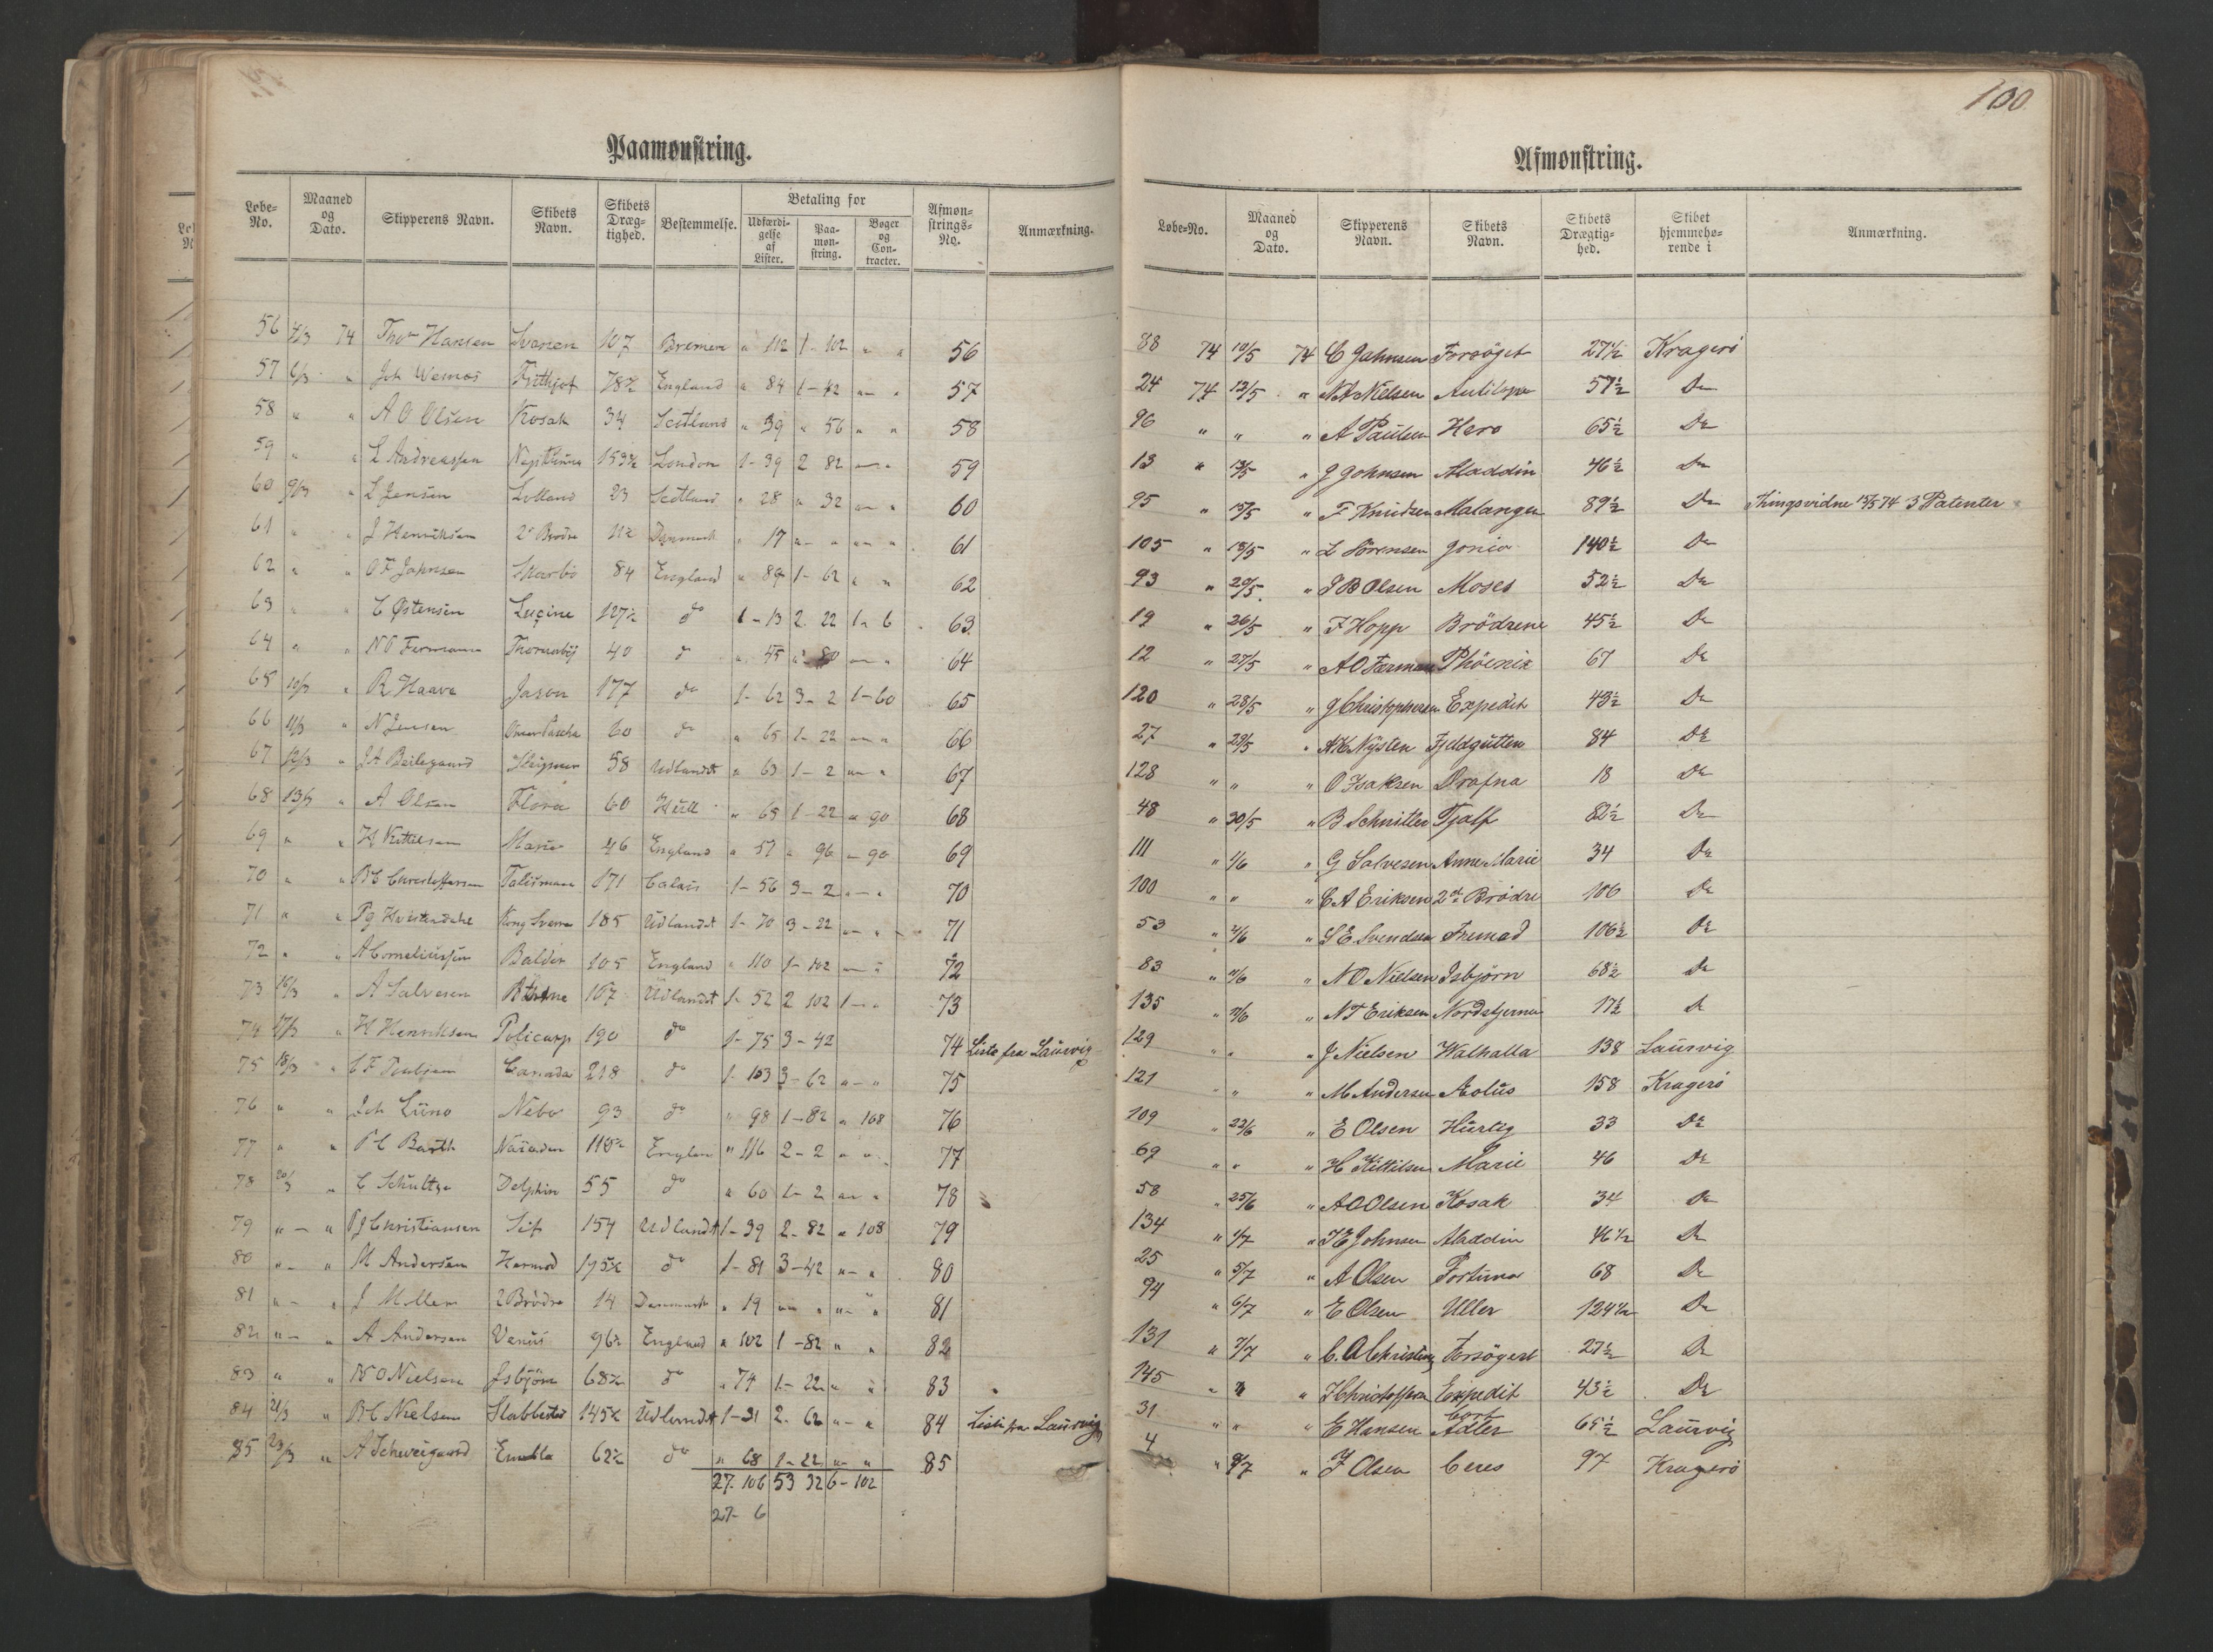 Paamønstring.
Løbe-No. Maaned og Dato. Skipperens Navn. Skibets Navn. Skibets Dræg-tighed. Bestemmelse. Betaling for Udfærdi-gelse af Lister. Paa-møn-string. Bøger og Con-tracter. Afmøn-strings-No. Anmærkning.
56 4/3 74 Thos Hansen Svanen 107 Bremen " 112 1 - 102 " " 56
57 6/3 " Joh Wemos Frithjof 78½ England " 84 1 - 42 " " 57
58 " " A O Olsen Kosak 34 Scotland " 39 " 56 " " 58
59 " " L Andreassen 153½ London 1 - 39 2 82 " " 59
60 9/3 " L Jensen Lolland 23 Scotland " 28 " 32 " " 60
61 " " J Henriksen 2de Brødre 11½ Danmark " 17 " " " " 61
62 " " O F Johnsen 84 England " 89 1 - 62 " " 62
63 " " C Østensen Lucine 127½ do 1 - 13 2 - 22 1 - 6 63
64 " " N O Fermann 40 do " 45 " 80 " " 64
65 10/3 " R Haave Jason 177 do 1 - 62 3 - 2 1 - 60 65
66 11/3 " N Jensen Omer Pascha 60 do " 65 1 - 22 " " 66
67 12/3 " J A Beilegaard 58 Udlandet " 63 1 - 2 " " 67
68 13/3 " A Olsen Flora 60 Hull " 65 1 - 22 " 90 68
69 " " H Kittilsen Marie 46 England " 51 " 96 " 90 69
70 " " B C Christoffersen Talisman 171 Calais 1 - 56 3 - 2 " " 70
71 " " Kong Sverre 185 Udlandet 1 - 70 3 - 22 " " 71
72 " " A Corneliussen Balder 105 England " 110 1 - 102 " " 72
73 16/3 " A Salvesen 167 Udlandet 1 - 52 2 102 1 - " 73
74 17/3 " H Henriksen Policarp 190 do 1 - 75 3 - 42 74 Liste fra Laurvig
75 18/3 " C F Canada 218 do 1 - 103 3 - 62 " " 75
76 " " Joh Lüno Nebo 93 do " 98 1 - 82 " 108 76
77 " " P C Barth Naiaden 118½ Englan " 116 2 - 2 " " 77
78 20/3 " C Schultze Delphin 55 do " 60 1 - 2 " " 78
79 " " P J Christiansen Leif 154 Udlandt 1 - 39 2 - 82 " 108 79
80 " " M Andersen Hermod 195½ do 1 - 81 3 - 42 " " 80
81 " " J Møller 2 Brødre 14 Danmark " 19 " " " " 81
82 " " A Andersen Venus 96½ England " 102 1 - 82 " " 82
83 " " N O Nielsen Isbjörn 68½ do " 74 1 - 22 " " 83
84 21/3 " B C Nielsen Slabbested 145½ Udlandet 1 - 31 2 - 62 " " 84 Liste fra Laurvig
85 23/3 " A Schweigaard Embla 62½ do " 68 1 - 22 " " 85
27 - 106 53 32 6 - 102
27 - 6
100
Afmønstring.
Løbe-No. Maaned og Dato. Skipperens Navn. Skibets Navn. Skibets Drægtig-hed. Skibet hjemmehø-rende i Anmærkning.
88 74 10/5 74 C Johnsen Forsøget 27½ Kragerö
24 74 12/5 " N A Nielsen Antilope 57½ Do
96 " " " A Paulsen Hero 65½ Do
13 " 13/5 " J Johnsen Aladdin 46½ Do
95 " 15/5 " F Knudsen Malangen 89½ Do Thingsvidne 15/5 74 3 Patenter
105 " 18/5 " L Sörensen Jonia 140½ Do
93 " 20/5 " J B Olsen Moses 52½ Do
19 " 26/5 " F Hopp Brödrene 45½ Do
12 " 27/5 " A O Færman Phöenix 67 Do
120 " 28/5 " J Christophersen Expedit 43½ Do
27 " 29/5 " A K Nysten Fjeldgutten 84 Do
128 " " " O Isaksen Drafna 18 Do
48 " 30/5 " B Schnitler Tjalf 82½ Do
111 " 1/6 " G Salvesen Anne Marie 34 Do
100 " " " C A Eriksen 2de Brödre 106 Do
53 " 4/6 " S E Svendsen Fremad 106½ Do
83 " " N O Nielsen Isbjørn 68½ Do
135 " " N T Eriksen Nordstjernen 17½ Do
129 " " " J Nielsen Walhalla 138 Laurvig
121 " " " M Andersen Æolus 158 Kragerö
109 " 22/6 " E Olsen Hurtig 33 Do
69 " " " H Kittilsen Marie 46 Do
58 " 25/6 " A O Olsen Kosak 34 Do
134 " 1/7 " J E Johnsen Aladdin 46½ Do
25 " 5/7 " A Olsen Fortuna 68 Do
94 " 6/7 " E Olsen Uller 124½ Do
131 " 7/7 " C. A Christens Forsøget 27½ Do
145 " " " J Christoffersen Expedit 43½ Do
31 " " " E Hansen Cort Adler 65½ Laurvig
4 " 9/7 " J Olsen Ceres 97 Kragerö